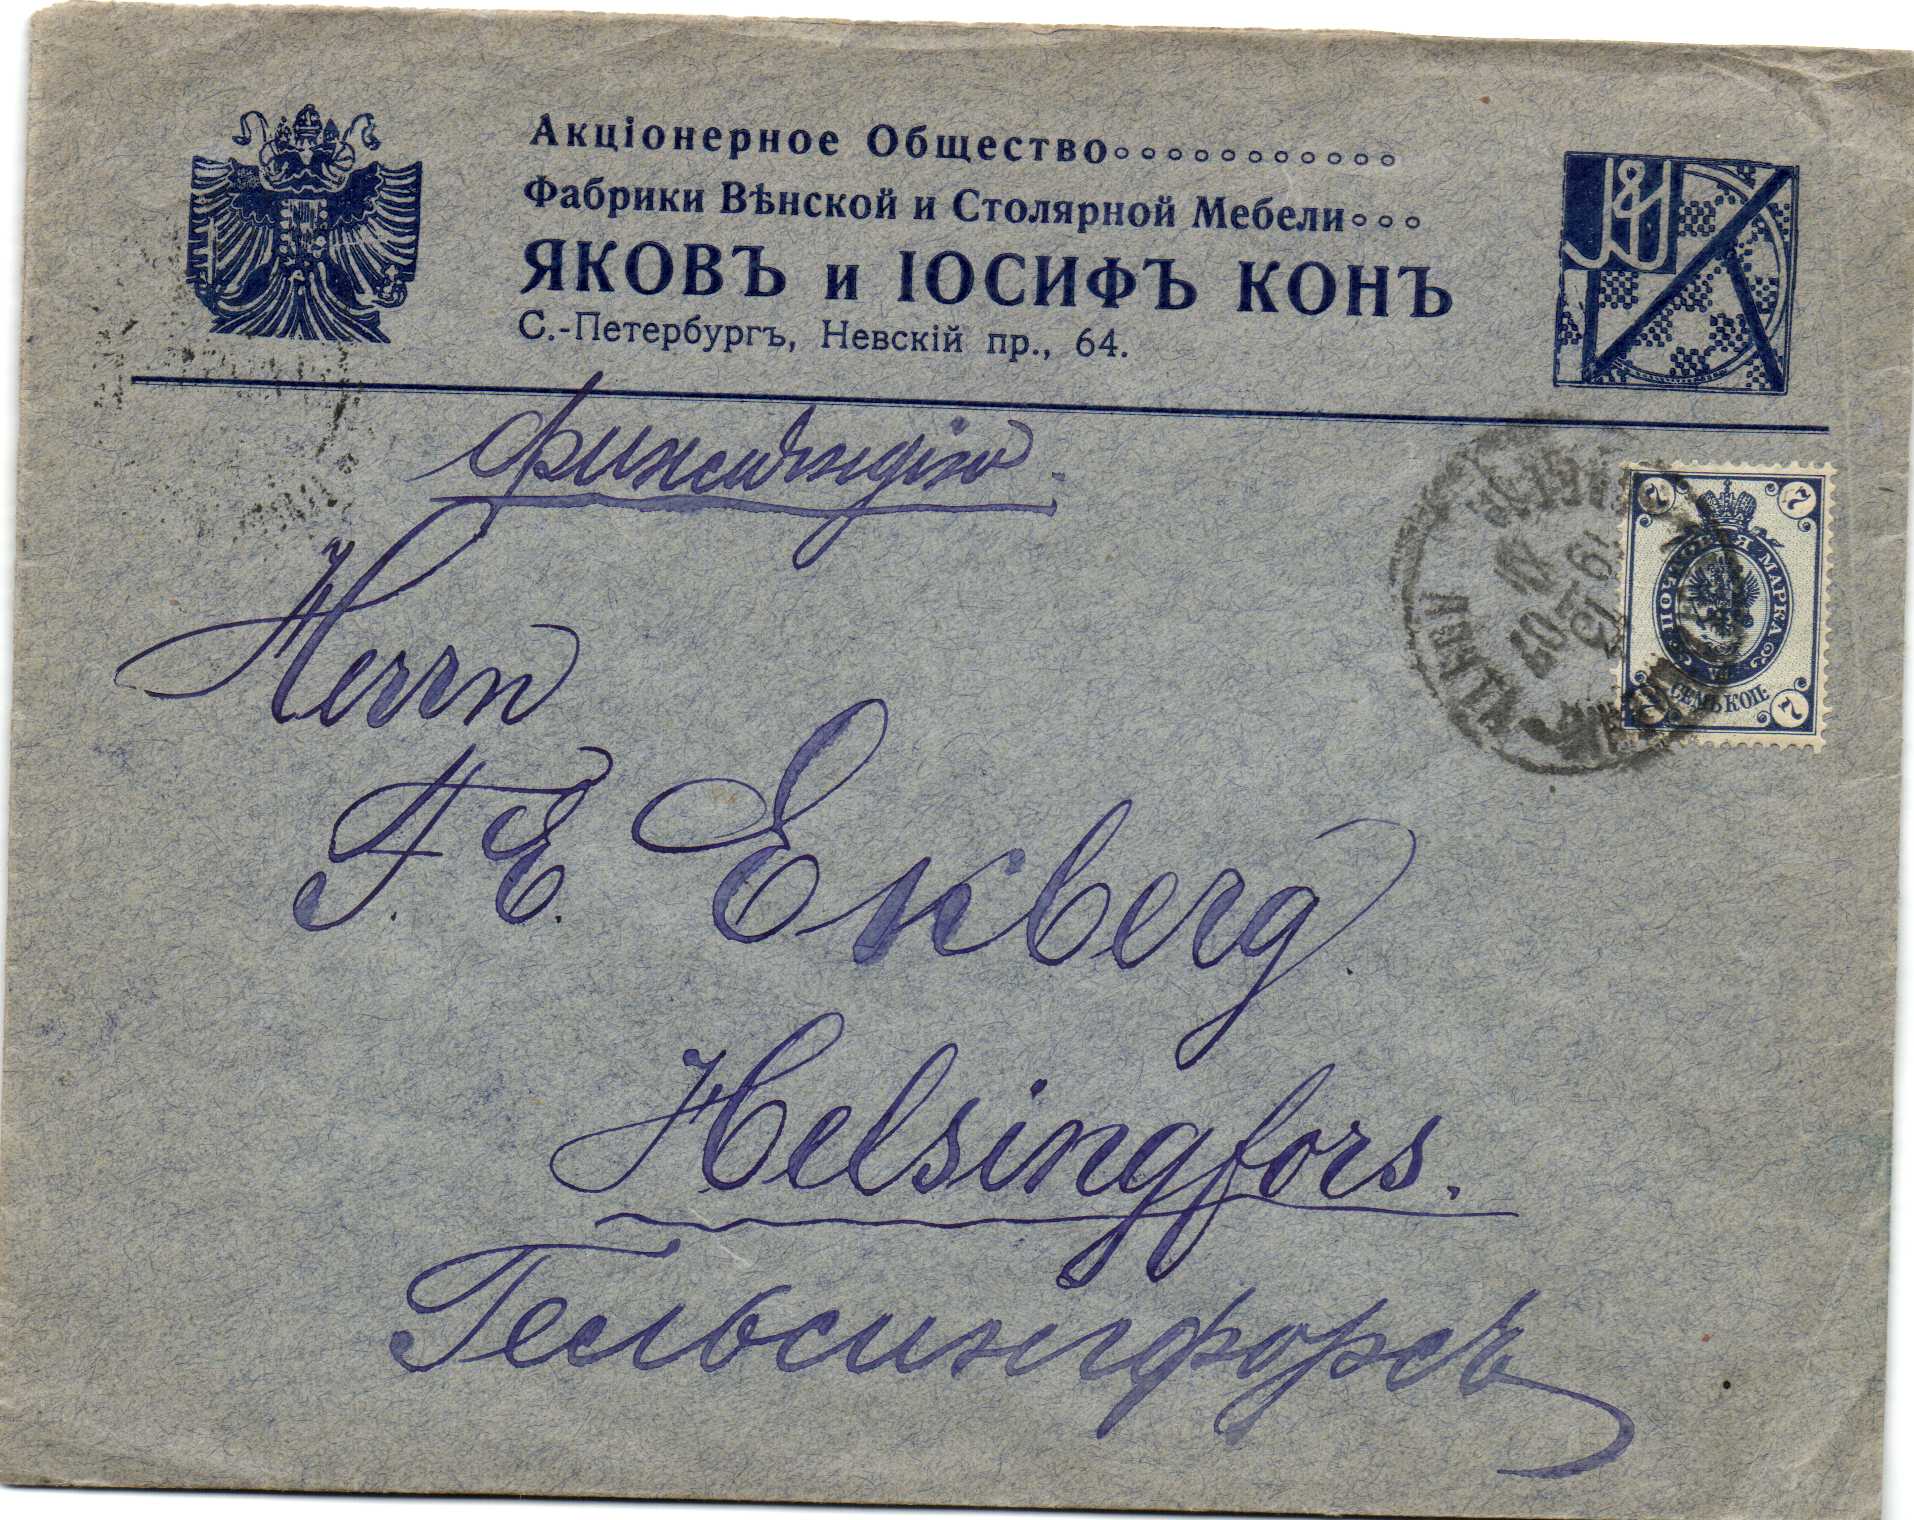 Акціонерное Общество
Фабрики Вѣнской и Столярной Мебели
ЯКОВЪ и ІОСИФЪ КОНЪ
С.-Петербургъ, Невскій пр., 64.
J&J
Финляндію
7 7
ПОЧТОВАЯ МАРКА
СЕМЬ КОП.
7 7
Herrn
F. E. Ekberg.
Helsingfors.
Гельсингфорсъ